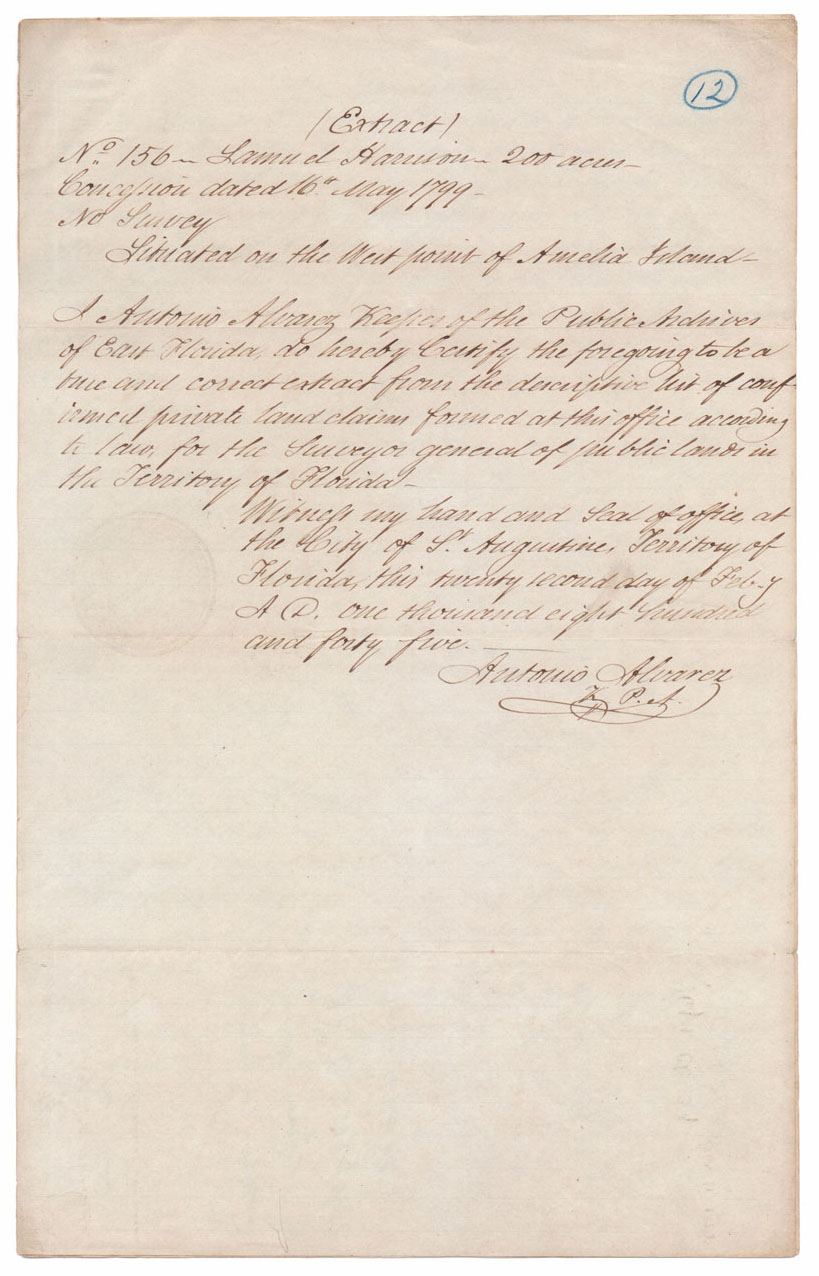 12
(Extract)
No. 156 - Samuel Harrison - 200 acres -
Concession dated 16th May 1799 -
No Survey
Situated on the West point of Amelia Island -
I Antonio Alvarez Keeper of the Public Archives
of East Florida, do hereby Certify the foregoing to be a
true and correct extract from the descriptive list of conf
irmed private land claims formed at this office according
to law, for the Surveyor general of public lands in
the Territory of Florida -
Witness my hand and Seal of office, at
the City of St. Augustine, Territory of
Florida, this twenty second day of Feb-y
A D. one thousand eight hundred
and forty five. -
Antonio Alvarez
K. P. A.